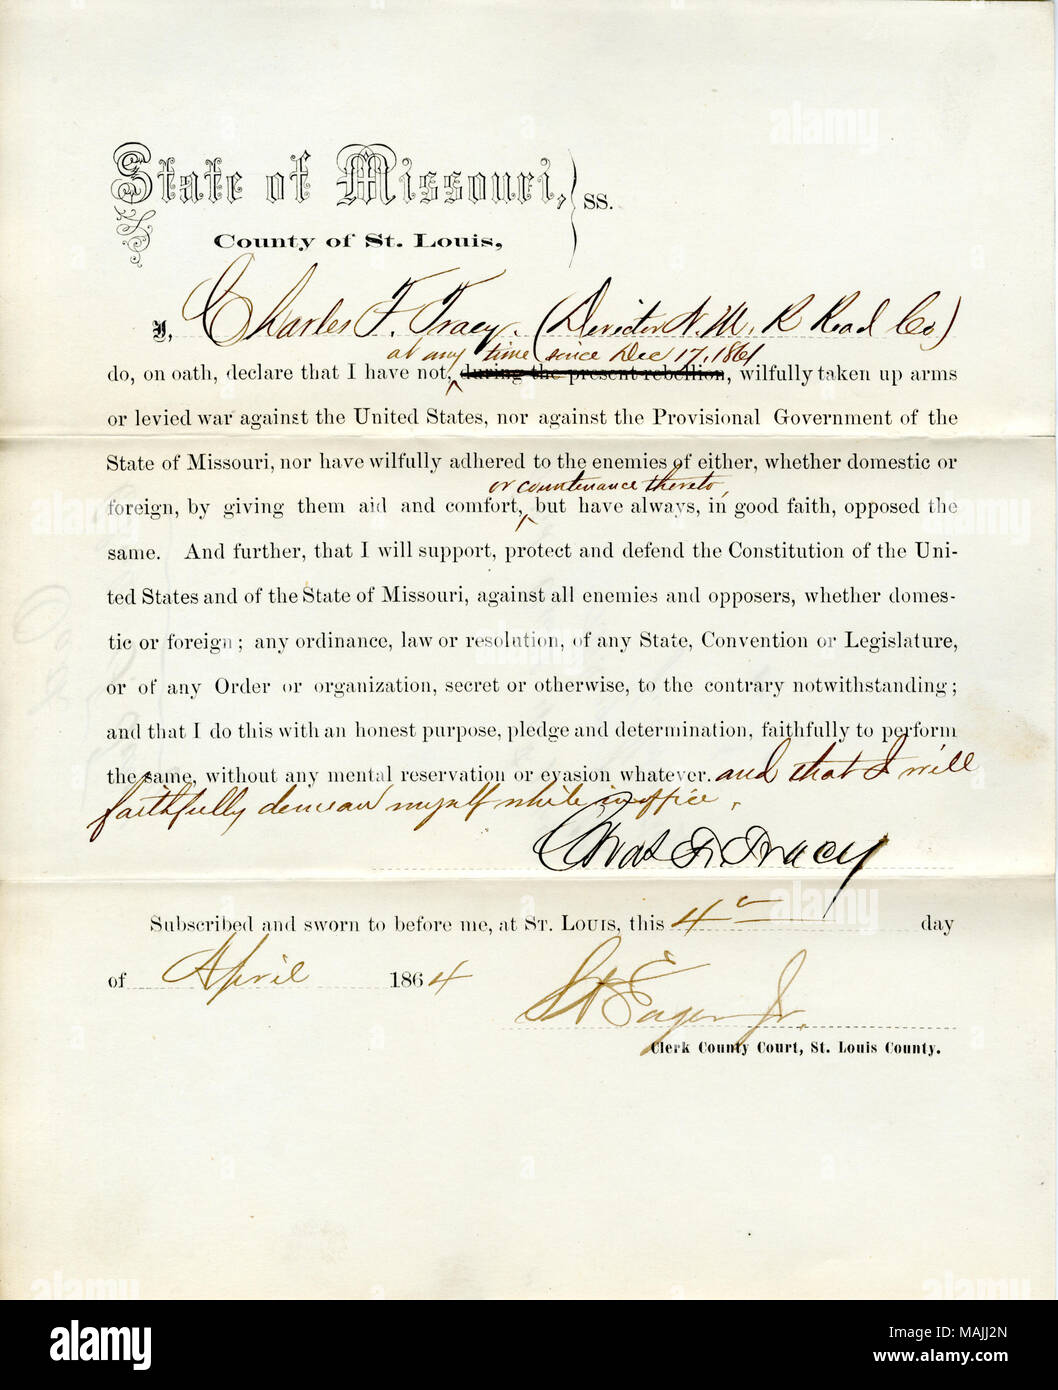 State of Missouri, } ss.
County of St. Louis,
I, Charles F. Tracy. (Director N. M. R Road Co)
at any time since Dec 17, 1861
do, on oath, declare that I have not, ‸ during the present rebellion, wilfully taken up arms
or levied war against the United States, nor against the Provisional Government of the
State of Missouri, nor have wilfully adhered to the enemies of either, whether domestic or
or countenance thereto,
foreign, by giving them aid and comfort, ‸ but have always, in good faith, opposed the
same. And further, that I will support, protect and defend the Constitution of the Uni-
ted States and of the State of Missouri, against all enemies and opposers, whether domes-
tic or foreign; any ordinance, law or resolution, of any State, Convention or Legislature,
or of any Order or organization, secret or otherwise, to the contrary notwithstanding;
and that I do this with an honest purpose, pledge and determination, faithfully to perform
the same, without any mental reservation or evasion whatever. and that I will
faithfully demean myself while in office.
Chas F. Tracy
Subscribed and sworn to before me, at St. Louis, this 4 day
of April 1864
Eager Jr.
Clerk County Court, St. Louis County.
alamy
Image ID: MAJJ2N
www.alamy.com